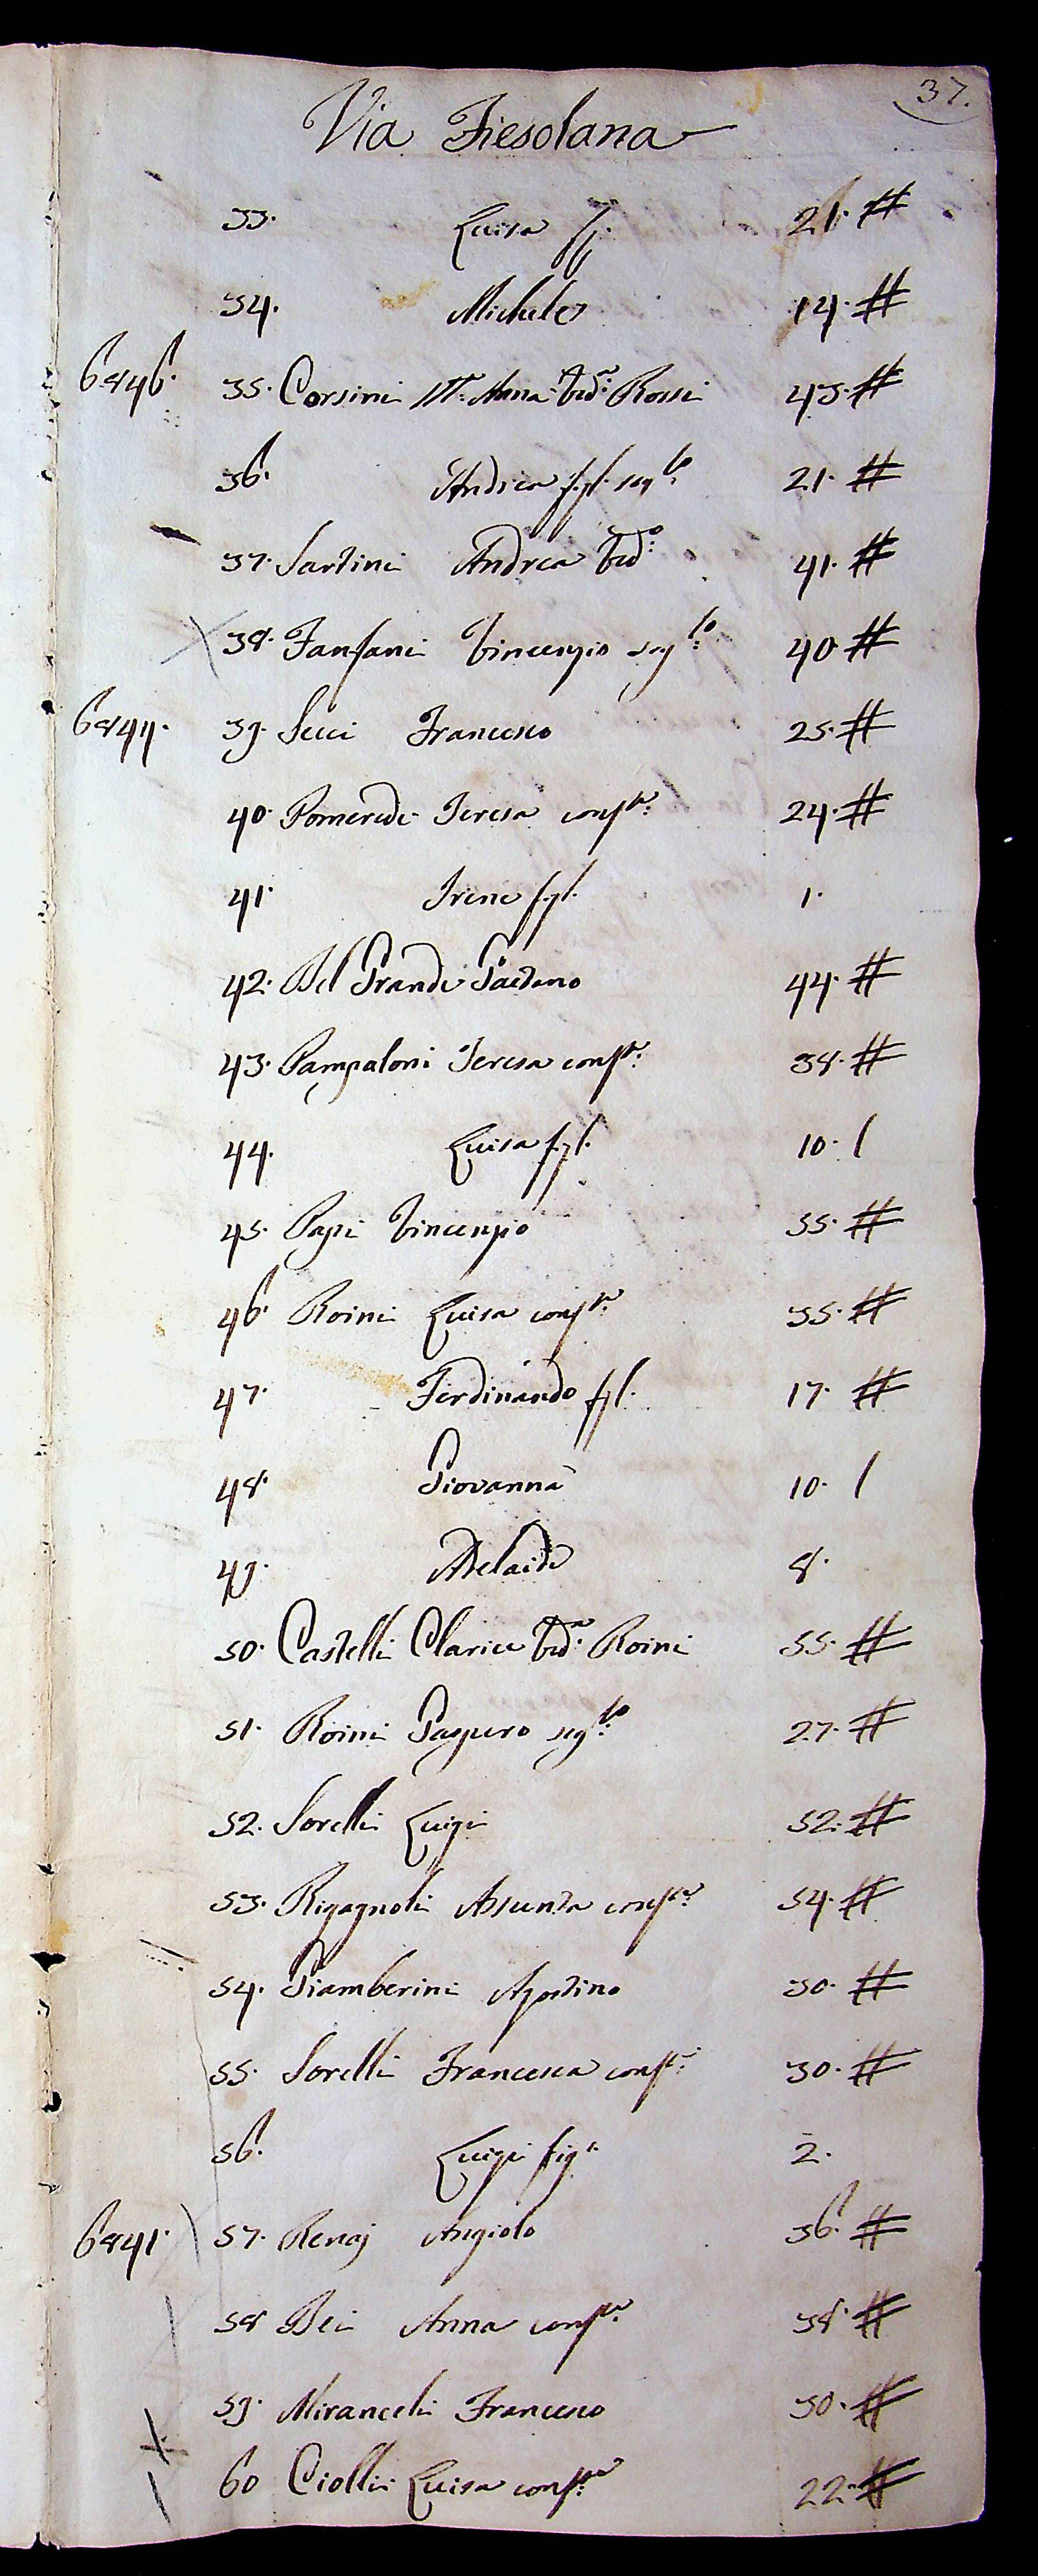 37.
Via Fiesolana
33. Luisa fgl. 21. #
34. Michele 14. #
6846. 35. Corsini Mª. Anna ved.ª Rossi 43. #
36. Andrea fgl. seg.lo 21. #
37. Sartini Andrea ved.º 41. #
38. Fanfani Vincenzio seg.lo 40 #
6844. 39. Secci Francesco 25. #
40. Pomeredi Teresa cons.te 24. #
41. Irene fgl. 1.
42. Del Grande Gaetano 44. #
43. Pampaloni Teresa cons.te 38. #
44. Luisa fgl. 10. /
45. Papi Vincenzio 35. #
46. Roini Luisa cons.te 35. #
47. Ferdinando fgl. 17. #
48. Giovanna 10. /
49. Adelaide 8.
50. Castelli Clarice ved.ª Roini 55. #
51. Roini Gaspero seg.lo 27. #
52. Sorelli Luigi 52. #
53. Rigagnoli Assunta cons.te 54. #
54. Giamberini Agostino 30. #
55. Sorelli Francesca cons.te 30. #
56. Luigi fig.º 2.
6841. 57. Renaj Angiolo 36. #
58 Bei Anna cons.te 38. #
59. Miranceli Francesco 30. #
60 Ciolli Luisa cons.te 22. #